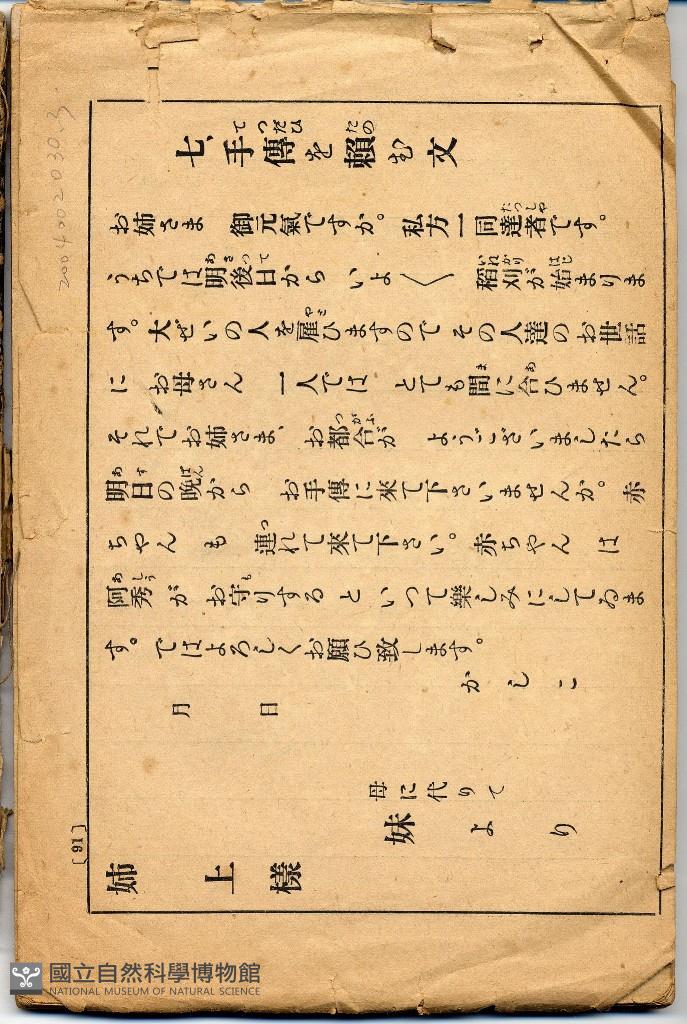 七、手傳を賴む文
お姉さま 御元氣ですか。私方一同達者です。
うちでは明後日から いよ〱 稻刈が始まりま
す。大ぜいの人を雇ひますので その人達のお世話
に お母さん 一人では とても間に合ひません。
それでお姉さま、お都合が ようございましたら
明日の晩から お手傳に來て下さいませんか。赤
ちやん も 連れて來て下さい。赤ちやん は
阿秀が お守りする と いつて樂しみにしてゐま
す。ではよろしくお願ひ致します。
かしこ
月 日
母に代りて
妹より
姉上樣
〔91〕
2004002030.3
國立自然科學博物館
NATIONAL MUSEUM OF NATURAL SCIENCE